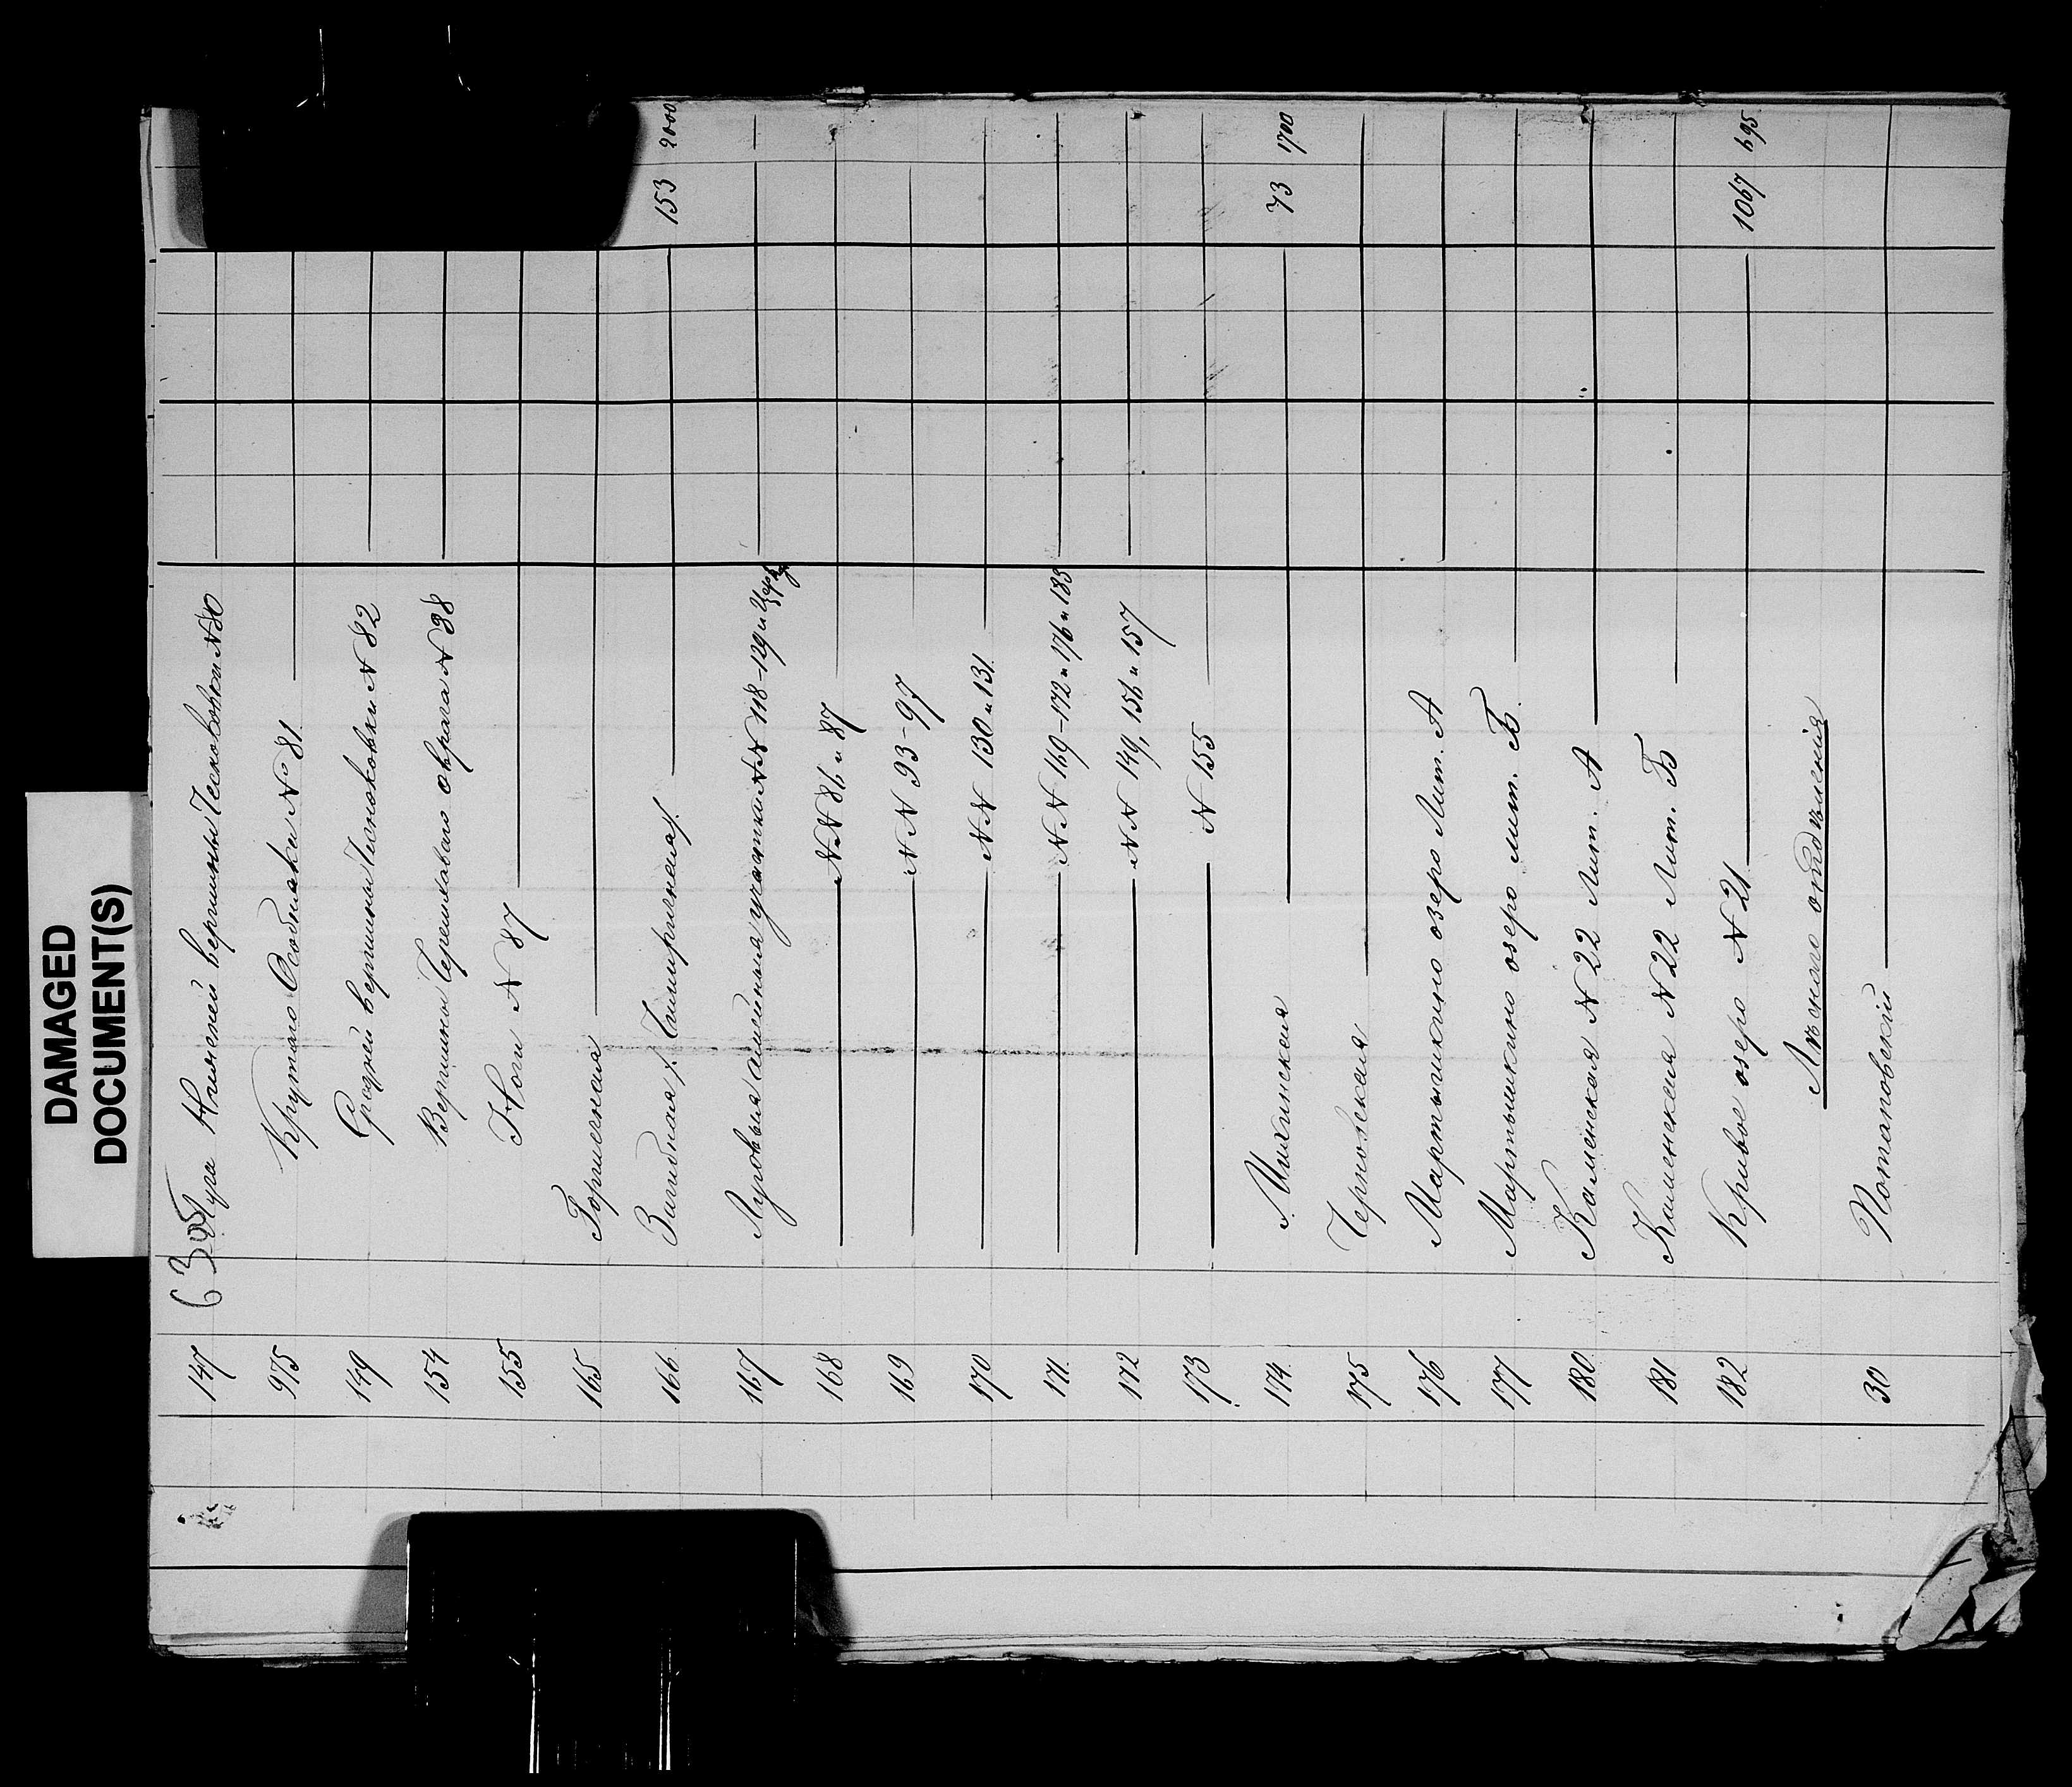 DAMAGED
DOCUMENT(S)
63 об
147 Луга Нижней вершины Песковотки № 80
975 Крутаго Особнаки № 81
149 Средней вершины Песковотки № 82
154 Вершины Черемхаваго оврага № 98
155 № 87
165 Горшечная
166 153 2000
167 Луговыя участки №№ 118-129 и
168 — №№ 86 и 87
169 — №№ 93-97
170 — №№ 130 и 131
171 — №№ 169-172 и 176 и 183
172 — №№ 149, 156 и 157
173 — № 155
174 73 1700
175 Черновская
176 Мартышкино озеро Лит. А
177 Мартышкино озеро лит. Б.
180 Каменская № 22 Лит. А
181 Каменская № 22 Лит. Б
182 Кривое озеро № 21 1067 695
Лѣснаго отдѣленія
30 Потаповскій